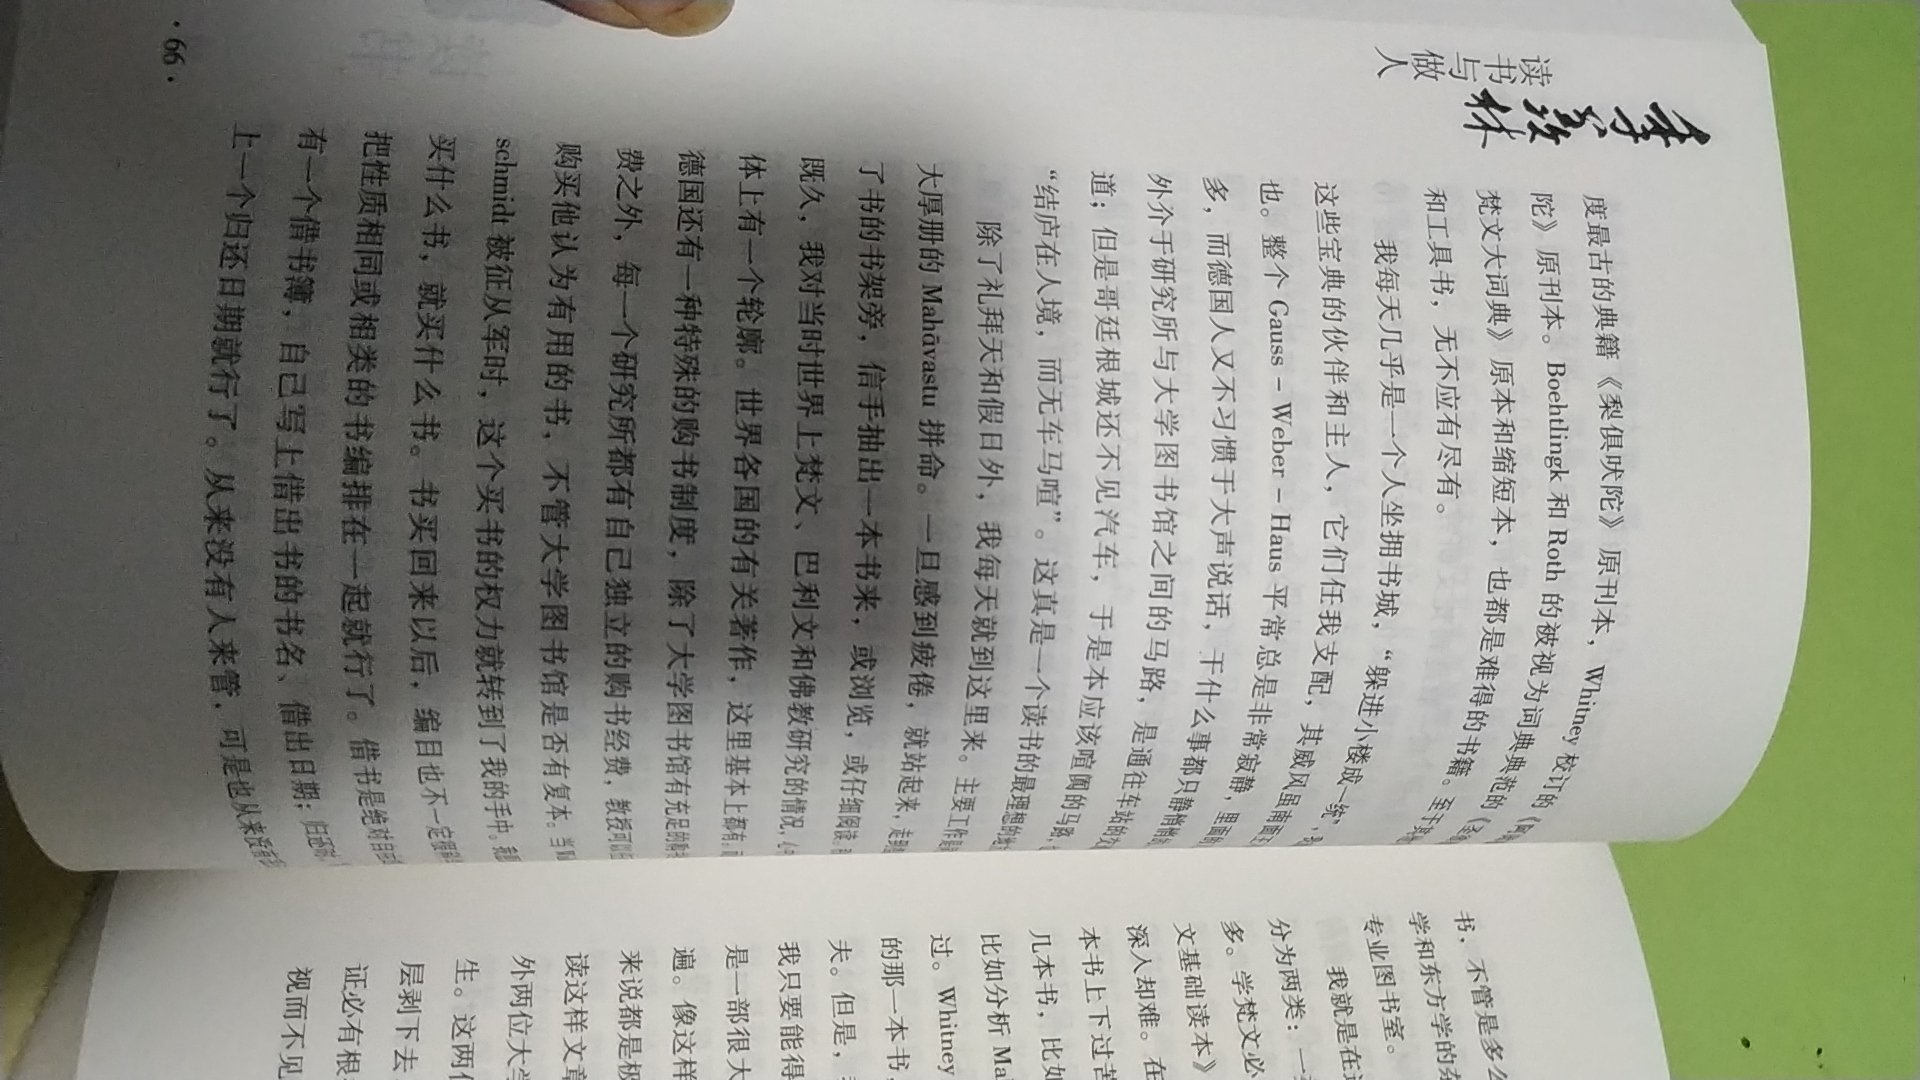 读书与做人
季羡林
度最古的典籍《梨俱吠陀》原刊本，Whitney 校订的
陀》原刊本。Boehtlingk 和 Roth 的被视为词典典范的
梵文大词典》原本和缩短本，也都是难得的书籍。至于其他
和工具书，无不应有尽有。
我每天几乎是一个人坐拥书城，“躲进小楼成一统”，
这些宝典的伙伴和主人，它们任我支配，其威风虽南面王
也。整个 Gauss – Weber – Haus 平常总是非常寂静，里面
多，而德国人又不习惯于大声说话，干什么事都只静悄悄
外介于研究所与大学图书馆之间的马路，是通往车站的
道；但是哥廷根城还不见汽车，于是本应该喧阗的马路，
“结庐在人境，而无车马喧”。这真是一个读书的最理想的
除了礼拜天和假日外，我每天就到这里来。主要工作是
大厚册的 Mahāvastu 拼命。一旦感到疲倦，就站起来，走到
了书的书架旁，信手抽出一本书来，或浏览，或仔细阅读。
既久，我对当时世界上梵文、巴利文和佛教研究的情况，
体上有一个轮廓。世界各国的有关著作，这里基本上都有。
德国还有一种特殊的购书制度，除了大学图书馆有充足的
费之外，每一个研究所都有自己独立的购书经费，教授可以
购买他认为有用的书，不管大学图书馆是否有复本。当
schmidt 被征从军时，这个买书的权力就转到了我的手中。
买什么书，就买什么书。书买回来以后，编目也不一定
把性质相同或相类的书编排在一起就行了。借书是绝对自由
有一个借书簿，自己写上借出书的书名、借出日期；归还时，
上一个归还日期就行了。从来没有人来管，可是也从来没有
· 66 ·
书，不管是多么
学和东方学的东
专业图书室。
我就是在这
分为两类：一
多。学梵文必
文基础读本》
深入却难。在
本书上下过苦
几本书，比如
比如分析 Ma
过。Whitney
的那一本书，
夫。但是，
我只要能得
是一部很大
遍。像这样
来说都是极
读这样文章
外两位大学
生。这两
层剥下去
证必有根
视而不见